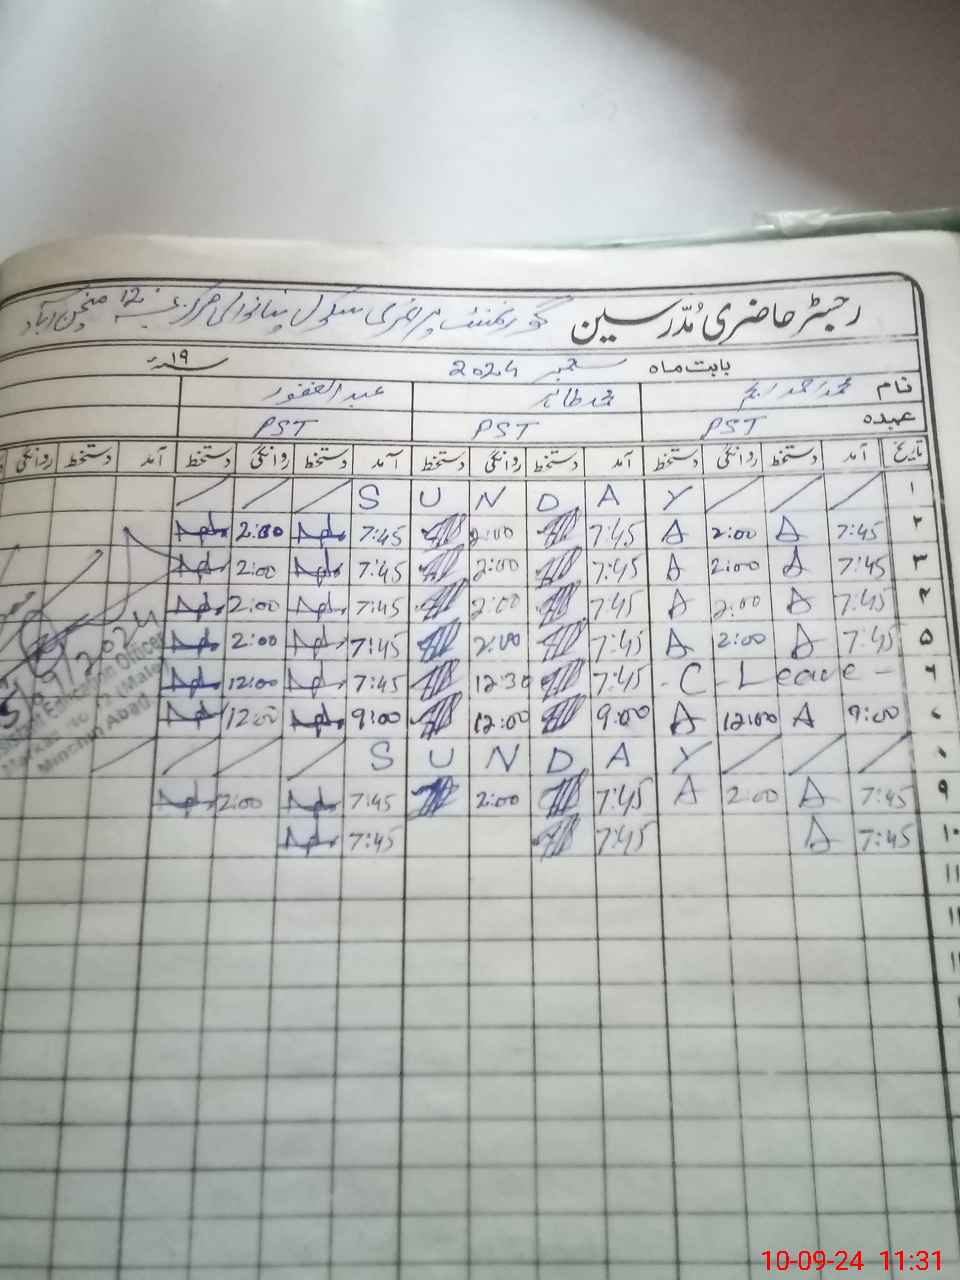 رجسٹر حاضری مُدّرسین گورنمنٹ پرائمری سکول مرکز نمبر 12 منچن آباد
بابت ماہ ستمبر 2024 ۱۹
نام محمد طاہر عبدالغفور
عہدہ PST PST PST
تاریخ آمد دستخط روانگی دستخط آمد دستخط روانگی دستخط آمد دستخط روانگی دستخط آمد دستخط روانگی
۱ S U N D A Y
۲ 7:45 A 2:00 A 7:45 2:00 7:45 2:00
۳ 7:45 A 2:00 A 7:45 2:00 7:45 2:00
۴ 7:45 A 2:00 A 7:45 2:00 7:45 2:00
۵ 7:45 A 2:00 A 7:45 2:00 7:45 2:00
۶ - C - Leave - 7:45 12:30 7:45 12:00
۷ 9:00 A 12:00 A 9:00 12:00 9:00 12:00
۸ S U N D A Y
۹ 7:45 A 2:00 A 7:45 2:00 7:45 2:00
۱۰ 7:45 A 7:45 7:45
۱۱
5/9/2024
Education Officer
Markaz No. 12 (Male)
Minchin Abad
10-09-24 11:31